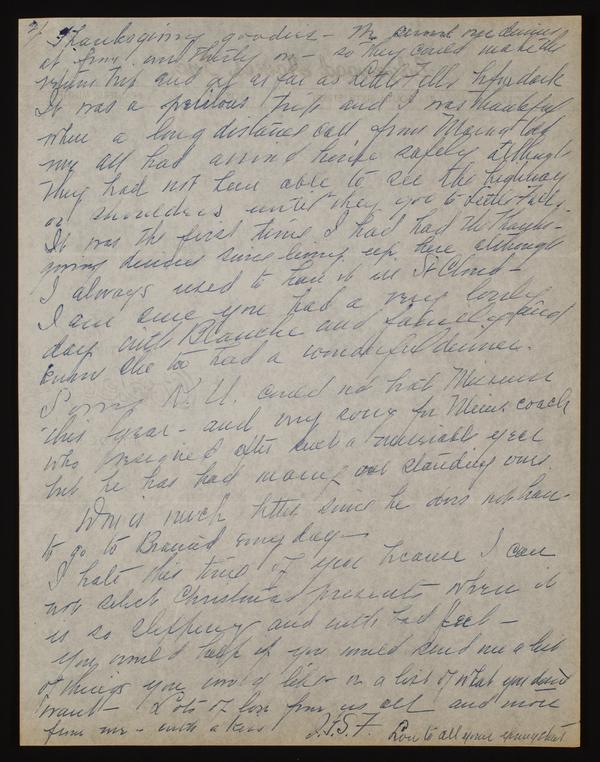 2/ Thanksgiving goodies - We served our dinner
at four and thirty on - so they could make the
return trip and get as far as Little Falls before dark
It was a perilous trip and I was thankful
when a long distance call from told
me all had arrived home safely although
they had not been able to see the highway
or shoulders until they got to Little Falls.
It was the first time I had had the Thanks-
giving dinner since living up here although
I always used to have it in St Cloud -
I am sure you had a very lovely
day with Blanche and family and
know she too had a wonderful dinner.
Sorry K. U. could not beat Missouri
this year - and very sorry for Minn coach
who resigned after such a miserable year
but he has had many out standing ones.
is much better since he does not have
to go to Brainerd every day -
I hate this time of year because I can
not select Christmas presents when it
is so slippery and with bad feet -
You would help if you would send me a list
of things you would like or a list of what you don't
want - Lots of love from us all and more
from me - with a kiss J.F.S.F. Love to all your